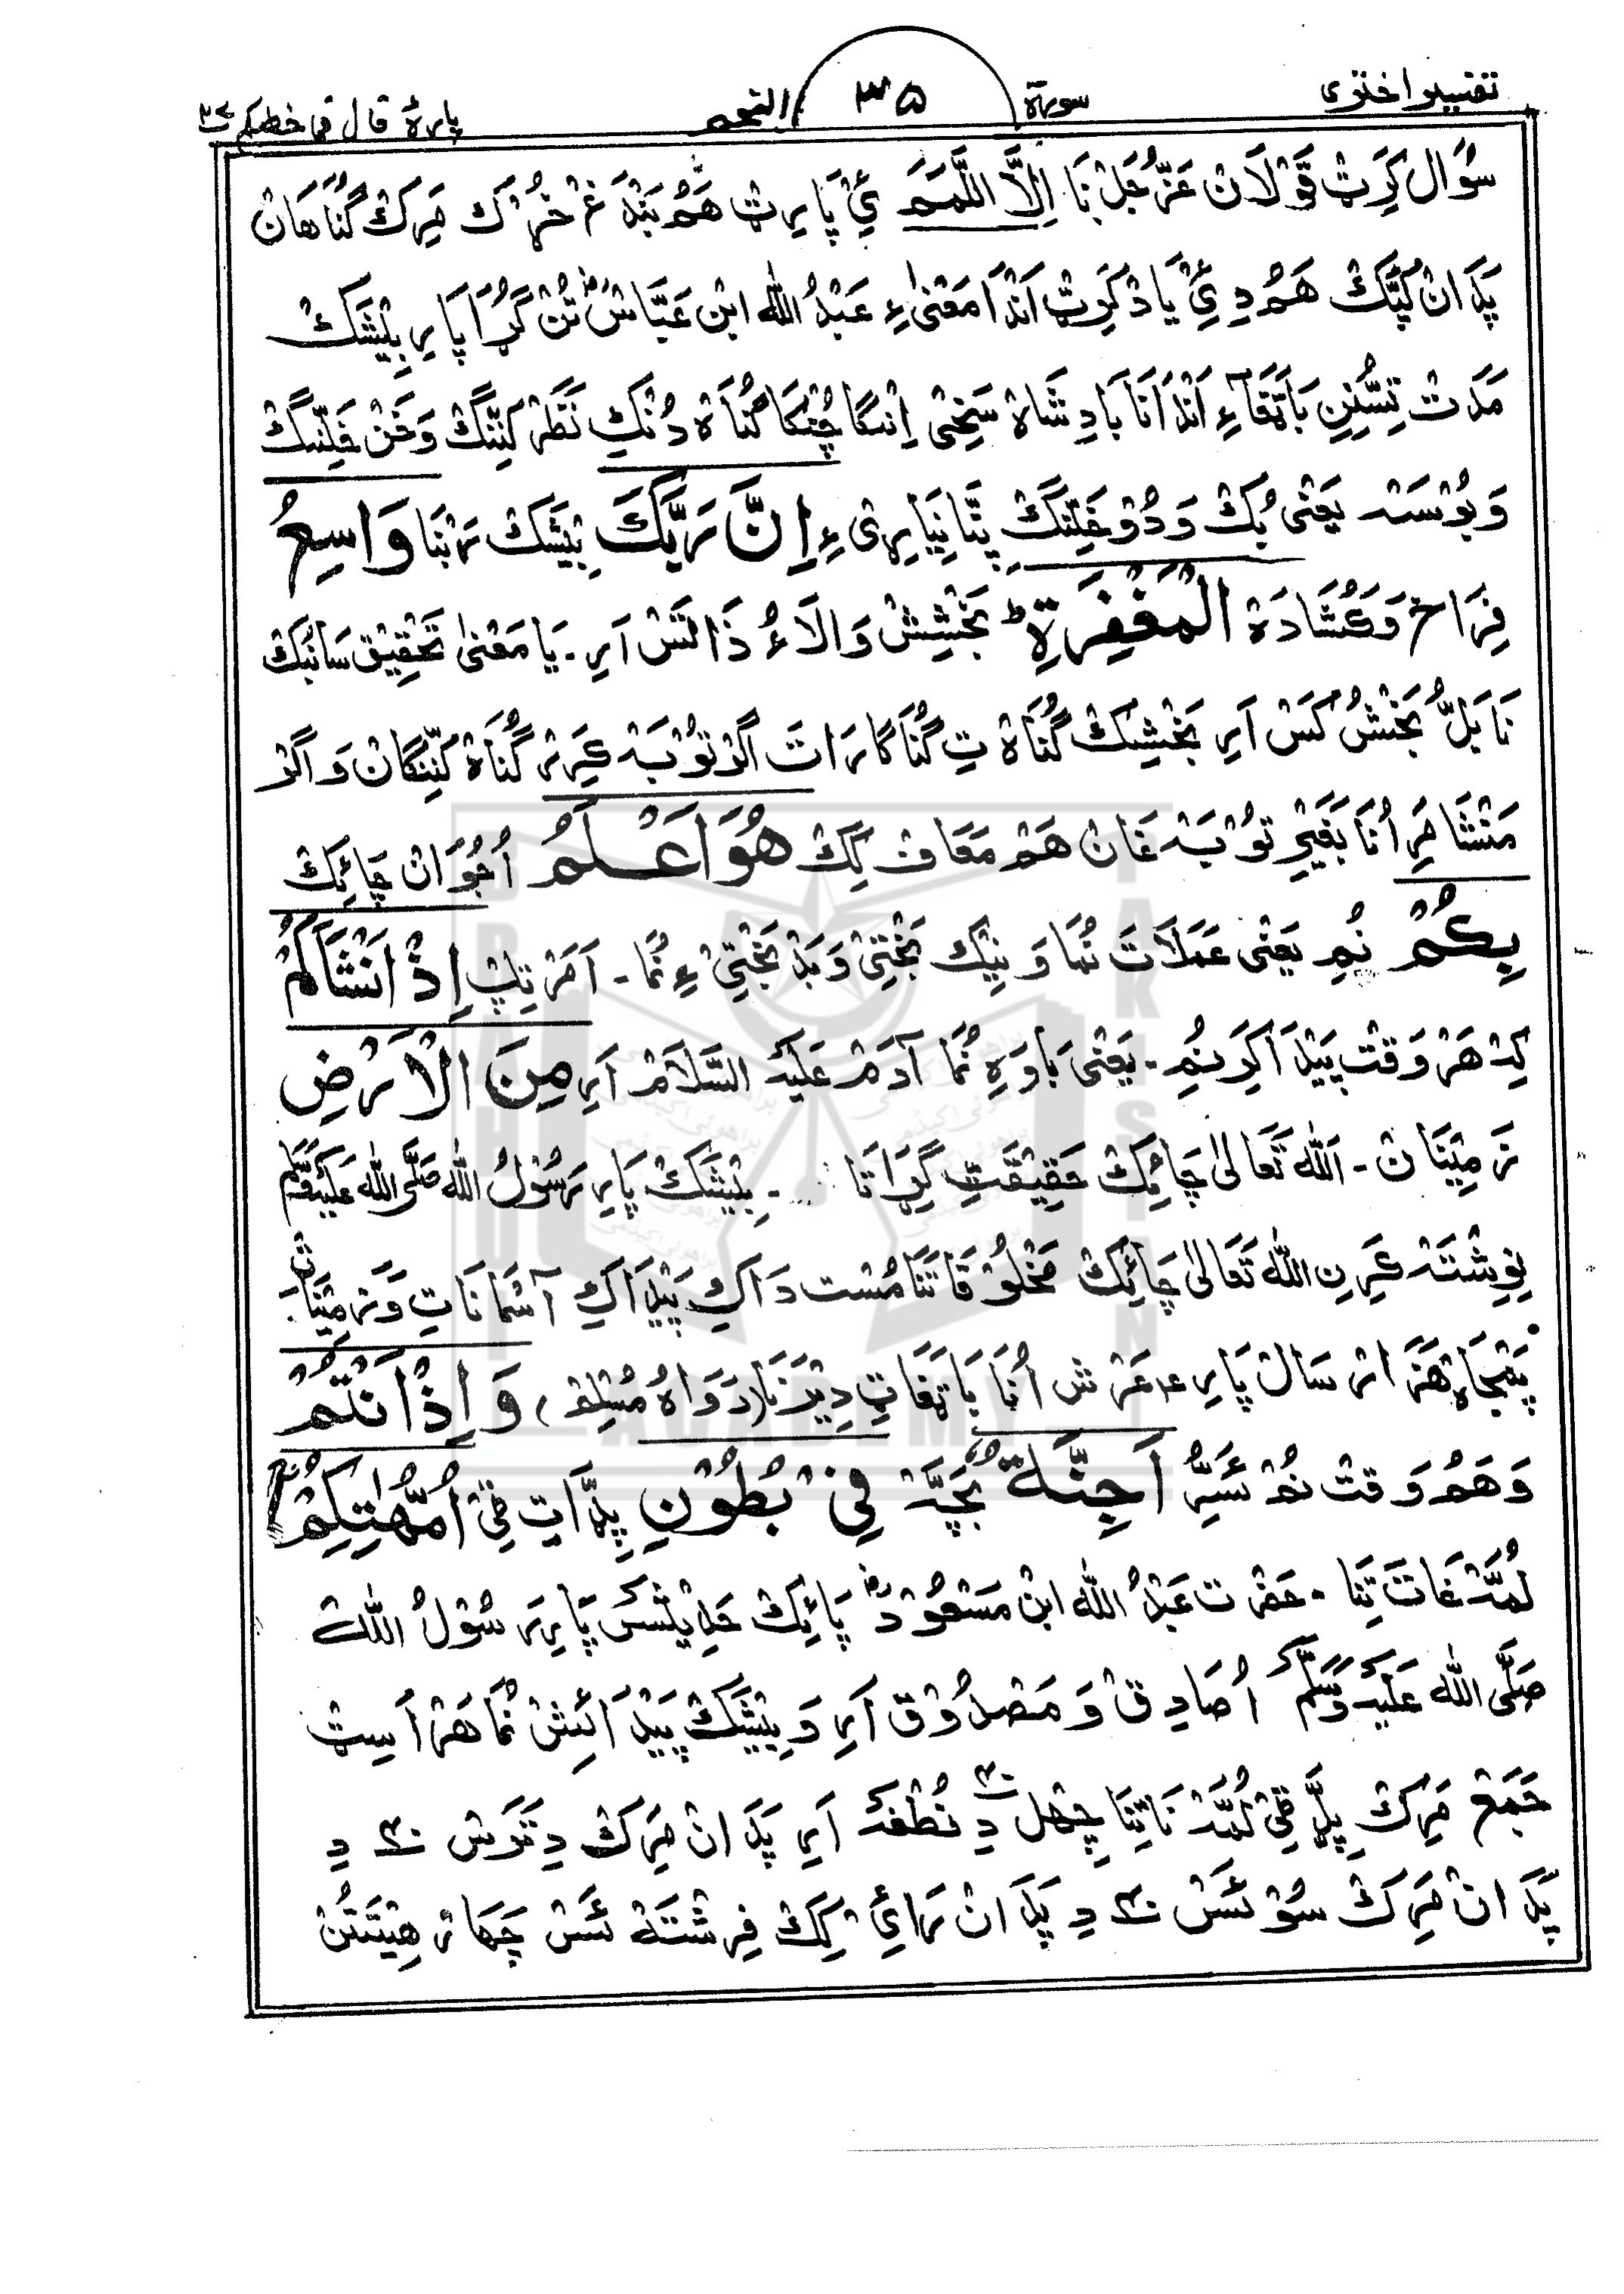 تفسیر اختری سورة ۳۵ النجم پارۂ قال فما خطبکم ۲۷
سُوَال کَرِٹ قَوْلَان عَزَّوَجَلْ نَا اِلَّا اللَّمَمَ ئِی پَارِٹ هَمُو بَنْدَغ خُرُک مَرِکْ گُنَاهَان
پَدَان کَپَّکْ هَمُودِئِی یَادْ کَرِٹ اَنْدَا مَعْنٰیءِ عَبْدُ اللّٰه ابْنِ عَبَّاسْ تُنْ گُڑَا پَارِ بِیْشَکْ
مَدَتْ تِسُّنِنِ بَاتَغَاءِ اَنْدَا اَنَا بَادِشَاهْ سَخِیْ اِنْسَگا چُنْکَا گُنَاهْ دُنْکِ نَظَرْ کَنِنَّگْ وَخَنْ خَلِنِگْ
وَبُوْسَه یَعْنٰی بُکْ وَدُوْ خَلِنِگْ پِنَّا نِیَا یِرِیءِ اِنَّ رَبَّكَ بِیْشَکْ رَبْ نَا وَاسِعُ
فِرَاخ وَکُشَادَهْ الْمَغْفِرَةِ ؕ بَخْشِشْ وَالَاءُ ذَاتَسْ اَرِ ۔ یَا مَعْنٰی تَحْقِیْق سَائِبَکْ
نَا بَلُّ بَخْشُ کَسْ اَرِ بَخْشِکْ گُنَاهْ تِ گُنَاگَارَاتَ اَگَرْ تَوْبَه کَرِرْ گُنَاهْ کَنِّنْگَانْ وَاَگَرْ
مَنْشَا مَرِ اُنَا بَغَیْرِ تَوْبَه غَانْ هَمْ مَعَاف کِکْ هُوَ اَعْلَمُ اُ جُوَانْ چَائِکْ
بِكُمْ نُمِ یَعْنٰی عَمَلَاتَ نُمَا وَنِیْک بَخْتِیْ وَبَدْ بَخْتِیْءِ نُمَا ۔ اَمَرْ تِپْ اِذْ اَنْشَاَكُمْ
کِه هَرْ وَقْت پَیْدَا کَرِ نُمِ ۔ یَعْنٰی بَاوَه نُمَا آدَمْ عَلَیْهِ السَّلَامْ اَرِ مِنَ الْاَرْضِ
زَمِیْنَان ۔ اَللّٰه تَعَالٰی چَائِکْ حَقِیْقَتِ گِڑَاتَا ۔ بِیْشَکْ پَارِ رَسُوْلُ اللّٰه صَلَّی اللّٰه عَلَیْهِ وَسَلَّمْ
نِوِشْتَه کَرِنِ اللّٰه تَعَالٰی چَائِکْ مَخْلُوْقَاتَنَا مُسْت دَاکِ پَیْدَاکِ آسْمَانَاتِ وَزَمِیْنَاتِ
پَنْجَاه هَزَارْ سَال پَارِ عَرْش اُنَا بَاتَغَاتِ دِیْرَنَا (رَوَاهُ مُسْلِمْ) وَاِذْ اَنْتُمْ
وَهَمُو وَقْت نُمْ ئَسُرِ اَجِنَّةٌ بَچَّه فِیْ بُطُوْنِ پِڈَّاتِ ٹِی اُمَّهٰتِكُمْ ۚ
لُمَّه غَاتَ تِنَا ۔ حَضْرَت عَبْدُ اللّٰه ابْن مَسْعُوْد پَائِکْ حَدِیْثَسْ پَارِ رَسُوْلُ اللّٰه
صَلَّی اللّٰه عَلَیْهِ وَسَلَّمْ اُ صَادِقْ وَمَصْدُوْق اَرِ وَبِیْشَکْ پَیْدَائِشْ نُمَا هَرْ اَسِٹ
جَمَعْ مَرِکْ پِڈَّ ٹِی لُمَّه نَا تِنَا چِهَل ۴۰ دِ نُطْفَه اَرِ پَدَانْ مَرِکْ دِتَرَسْ ۴۰ دِ
پَدَ انْ مَرِکْ سُوْ ئَسْ ۴۰ دِ پَدَ انْ رَائِی کِکْ فِرِشْتَهْ ئَسْ چَهَارْ هِیْتَتُنْ